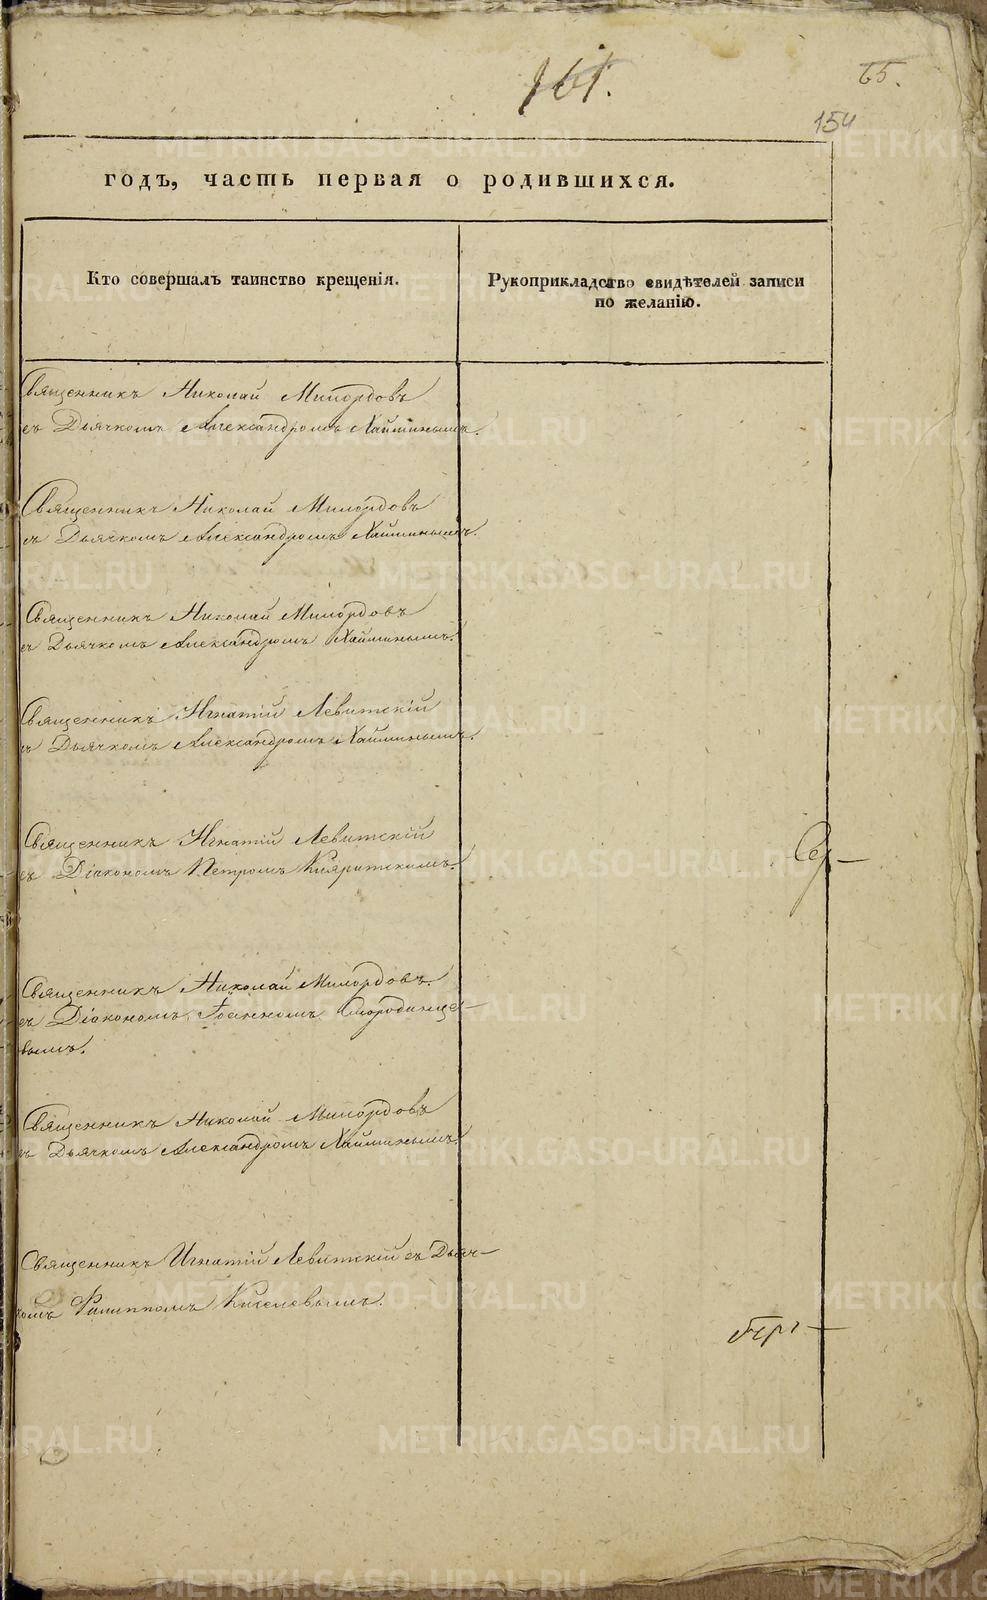 161.
65.
154
годъ, часть первая о родившихся.
Кто совершалъ таинство крещенія.
Рукоприкладство свидѣтелей записи
по желанію.
Священникъ Николай Милордовъ
съ Дьячкомъ Александромъ Хайминымъ.
Священникъ Николай Милордовъ
съ Дьячкомъ Александромъ Хайминымъ.
Священникъ Николай Милордовъ
съ Дьячкомъ Александромъ Хайминымъ.
Священникъ Игнатій Левитскій
съ Дьячкомъ Александромъ Хайминымъ.
Священникъ Игнатій Левитскій
съ Діакономъ Петромъ
Священникъ Николай Милордовъ
съ Діакономъ Іоанномъ Смородинце-
вымъ.
Священникъ Николай Милордовъ
съ Дьячкомъ Александромъ Хайминымъ.
Священникъ Игнатій Левитскій съ Дьяч-
комъ Филиппомъ Киселевымъ.
METRIKI.GASO-URAL.RU